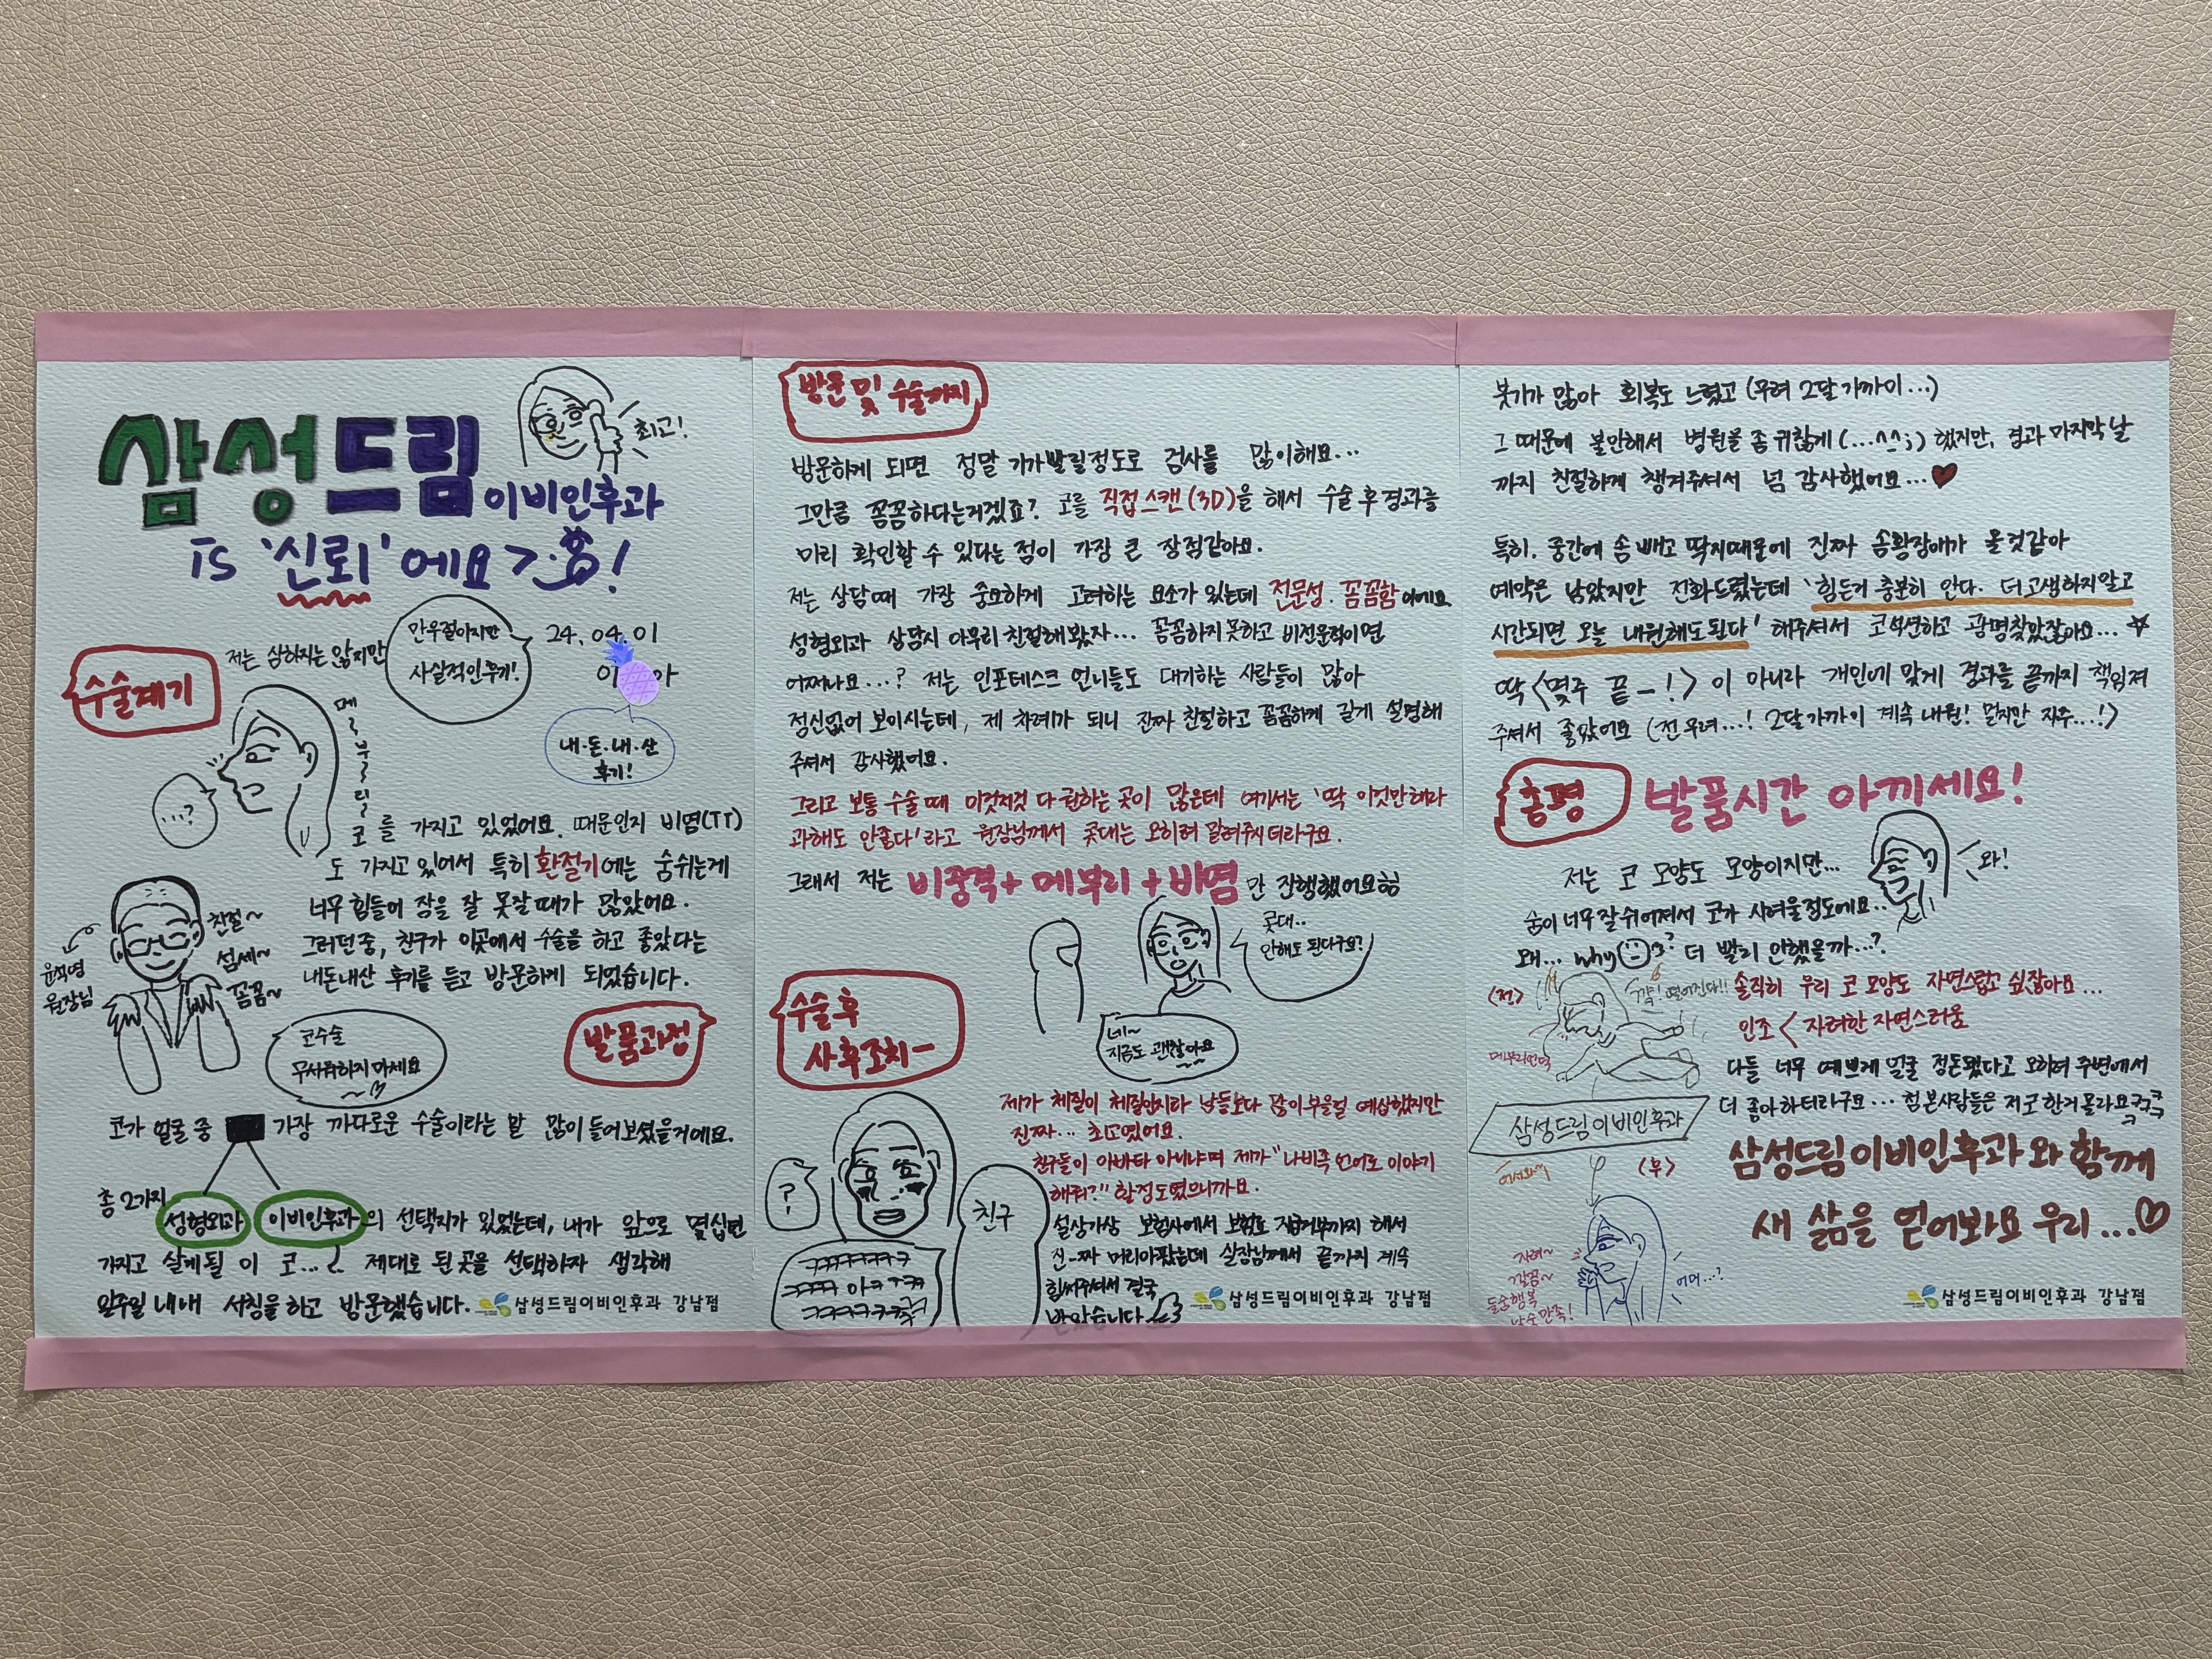 삼성드림이비인후과
is '신뢰'에요>.<!
최고!
24. 04. 01
만우절이지만
사실적인 후기!
내·돈·내·산
후기!
수술계기
저는 심하지는 않지만
메~부~리~
코를 가지고 있었어요. 때문인지 비염(TT)
도 가지고 있어서 특히 환절기에는 숨쉬는게
너무 힘들어 잠을 잘 못잘때가 많았어요.
그러던 중, 친구가 이곳에서 수술을 하고 좋았다는
내돈내산 후기를 듣고 방문하게 되었습니다.
...?
원장님
친절~
섬세~
꼼꼼~
코수술
무서워하지 마세요
발품과정
코가 얼굴 중 가장 까다로운 수술이라는 말 많이 들어보셨을거에요.
총 2가지
성형외과 이비인후과의 선택지가 있었는데, 내가 앞으로 몇십년
가지고 살게될 이 코... 제대로 된 곳을 선택하자 생각해
일주일 내내 서칭을 하고 방문했습니다.
삼성드림이비인후과 강남점
방문 및 수술까지
방문하게 되면 정말 기가빨릴정도로 검사를 많이해요...
그만큼 꼼꼼하다는거겠죠? 코를 직접스캔(3D)을 해서 수술 후 경과를
미리 확인할 수 있다는 점이 가장 큰 장점같아요.
저는 상담때 가장 중요하게 고려하는 요소가 있는데 전문성. 꼼꼼함이에요
성형외과 상담시 아무리 친절해봤자... 꼼꼼하지못하고 비전문적이면
어쩌나요...? 저는 인포데스크 언니들도 대기하는 사람들이 많아
정신없어 보이시는데, 제 차례가 되니 진짜 친절하고 꼼꼼하게 길게 설명해
주셔서 감사했어요.
그리고 보통 수술때 이것저것 다 권하는 곳이 많은데 여기서는 '딱 이것만해라
과해도 안좋다'라고 원장님께서 콧대는 오히려 말려주시더라구요.
그래서 저는 비중격+메부리+비염만 진행했어요
콧대...
안해도 된다구요?
네~
지금도 괜찮아요
수술 후
사후조치-
제가 체질이 체질인지라 남들보다 많이부을걸 예상했지만
진짜... 최고였어요.
친구들이 아바타 아니냐며 제가 "나비족 언어로 이야기
해줘?" 할정도였으니까요.
설상가상 보험사에서 보험료 지급거부까지 해서
진-짜 머리아팠는데 실장님께서 끝까지 계속
힘써주셔서 결국
받았습니다
?
친구
삼성드림이비인후과 강남점
붓기가 많아 회복도 느렸고 (무려 2달 가까이...)
그 때문에 불안해서 병원을 좀 귀찮게 (...^^;) 했지만, 경과 마지막 날
까지 친절하게 챙겨주셔서 넘 감사했어요...♥
특히, 중간에 솜 빼고 딱지때문에 진짜 공황장애가 올것같아
예약은 남았지만 전화드렸는데 '힘든거 충분히 안다. 더 고생하지말고
시간되면 오늘 내원해도된다' 해주셔서 코 석션하고 광명찾았잖아요...☆
딱 <몇주 끝-!> 이 아니라 개인에 맞게 경과를 끝까지 책임져
주셔서 좋았어요 (전 무려...! 2달 가까이 계속 내원! 멀지만 자주...!)
총평
발품시간 아끼세요!
와!
저는 코 모양도 모양이지만...
숨이 너무 잘 쉬어져서 코가 시려울 정도에요..
왜... why? 더 빨리 안했을까...?
솔직히 우리 코 모양도 자연스럽고 싶잖아요...
인조 < 자려한 자연스러움
다들 너무 예쁘게 얼굴 정돈됐다고 오히려 주변에서
더 좋아하더라구요... 첨 본사람들은 저 코 한거 몰라요ㅋㅋㅋ
<전>
꺅! 떨어진다!!
삼성드림이비인후과
<후>
어머...?
삼성드림이비인후과와 함께
새 삶을 얻어봐요 우리...♡
삼성드림이비인후과 강남점